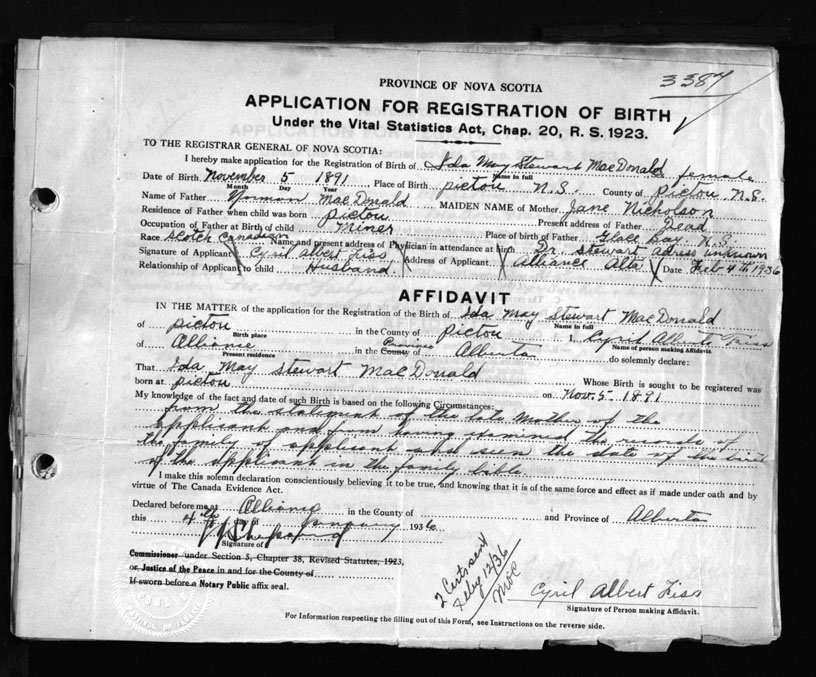 3387
PROVINCE OF NOVA SCOTIA
APPLICATION FOR REGISTRATION OF BIRTH
Under the Vital Statistics Act, Chap. 20, R. S. 1923.
TO THE REGISTRAR GENERAL OF NOVA SCOTIA:
I hereby make application for the Registration of Birth of Ida May Stewart MacDonald female
Name in full
Date of Birth November 5 1891 Place of Birth pictou N.S. County of Pictou N.S.
Month Day Year
Name of Father Norman MacDonald MAIDEN NAME of Mother Jane Nicholson
Residence of Father when child was born pictou Present address of Father Dead
Occupation of Father at Birth of child Miner Place of birth of Father Glace Bay N.S.
Race Scotch Canadian Name and present address of Physician in attendance at birth Dr. Stewart adress unknown
Signature of Applicant Cyril Albert Fiss Address of Applicant Alliance Alta Date Feb 4th 1936
Relationship of Applicant to child Husband
AFFIDAVIT
IN THE MATTER of the application for the Registration of the Birth of Ida May Stewart MacDonald
Name in full
of Pictou in the County of Pictou I, Cyril Alberto Fiss
Birth place Name of person making Affidavit.
of Alliance in the County of Province Alberta do solemnly declare:
Present residence
That Ida May Stewart MacDonald Whose Birth is sought to be registered was
born at Pictou on Nov. 5 - 1891
My knowledge of the fact and date of such Birth is based on the following Circumstances:
from the statement of the late Mother of the
applicant and from having examined the records of
the family of applicant and seen the date of the birth
of the applicant in the family bible
I make this solemn declaration conscientiously believing it to be true, and knowing that it is of the same force and effect as if made under oath and by
virtue of The Canada Evidence Act.
Declared before me at Alliance in the County of and Province of Alberta
this 4th day of 1936
Signature of
Commissioner under Section 5, Chapter 38, Revised Statutes, 1923,
or Justice of the Peace in and for the County of
If sworn before a Notary Public affix seal.
2 Certs sent
Feby 12/36
McC
Cyril Albert Fiss
Signature of Person making Affidavit.
For Information respecting the filling out of this Form, see Instructions on the reverse side.